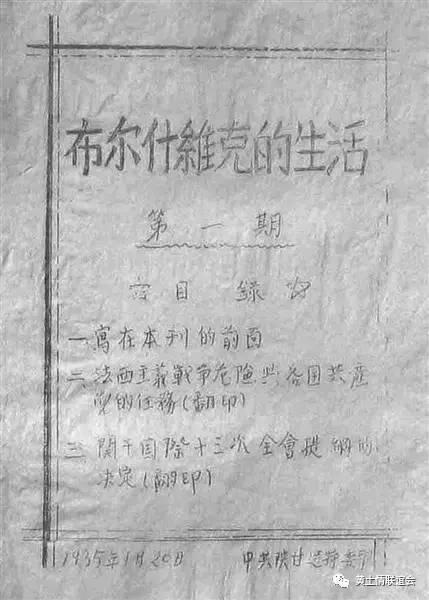 布尔什維克的生活
第一期
目 録
一 寫在本刊的前面
二 法西主義戰争危險与各囯共産
党的任務(翻印)
三 関于囯際十三次全會提綱的
决定(翻印)
1935年1月20日 中共陕甘边特委印
黄土情联谊会